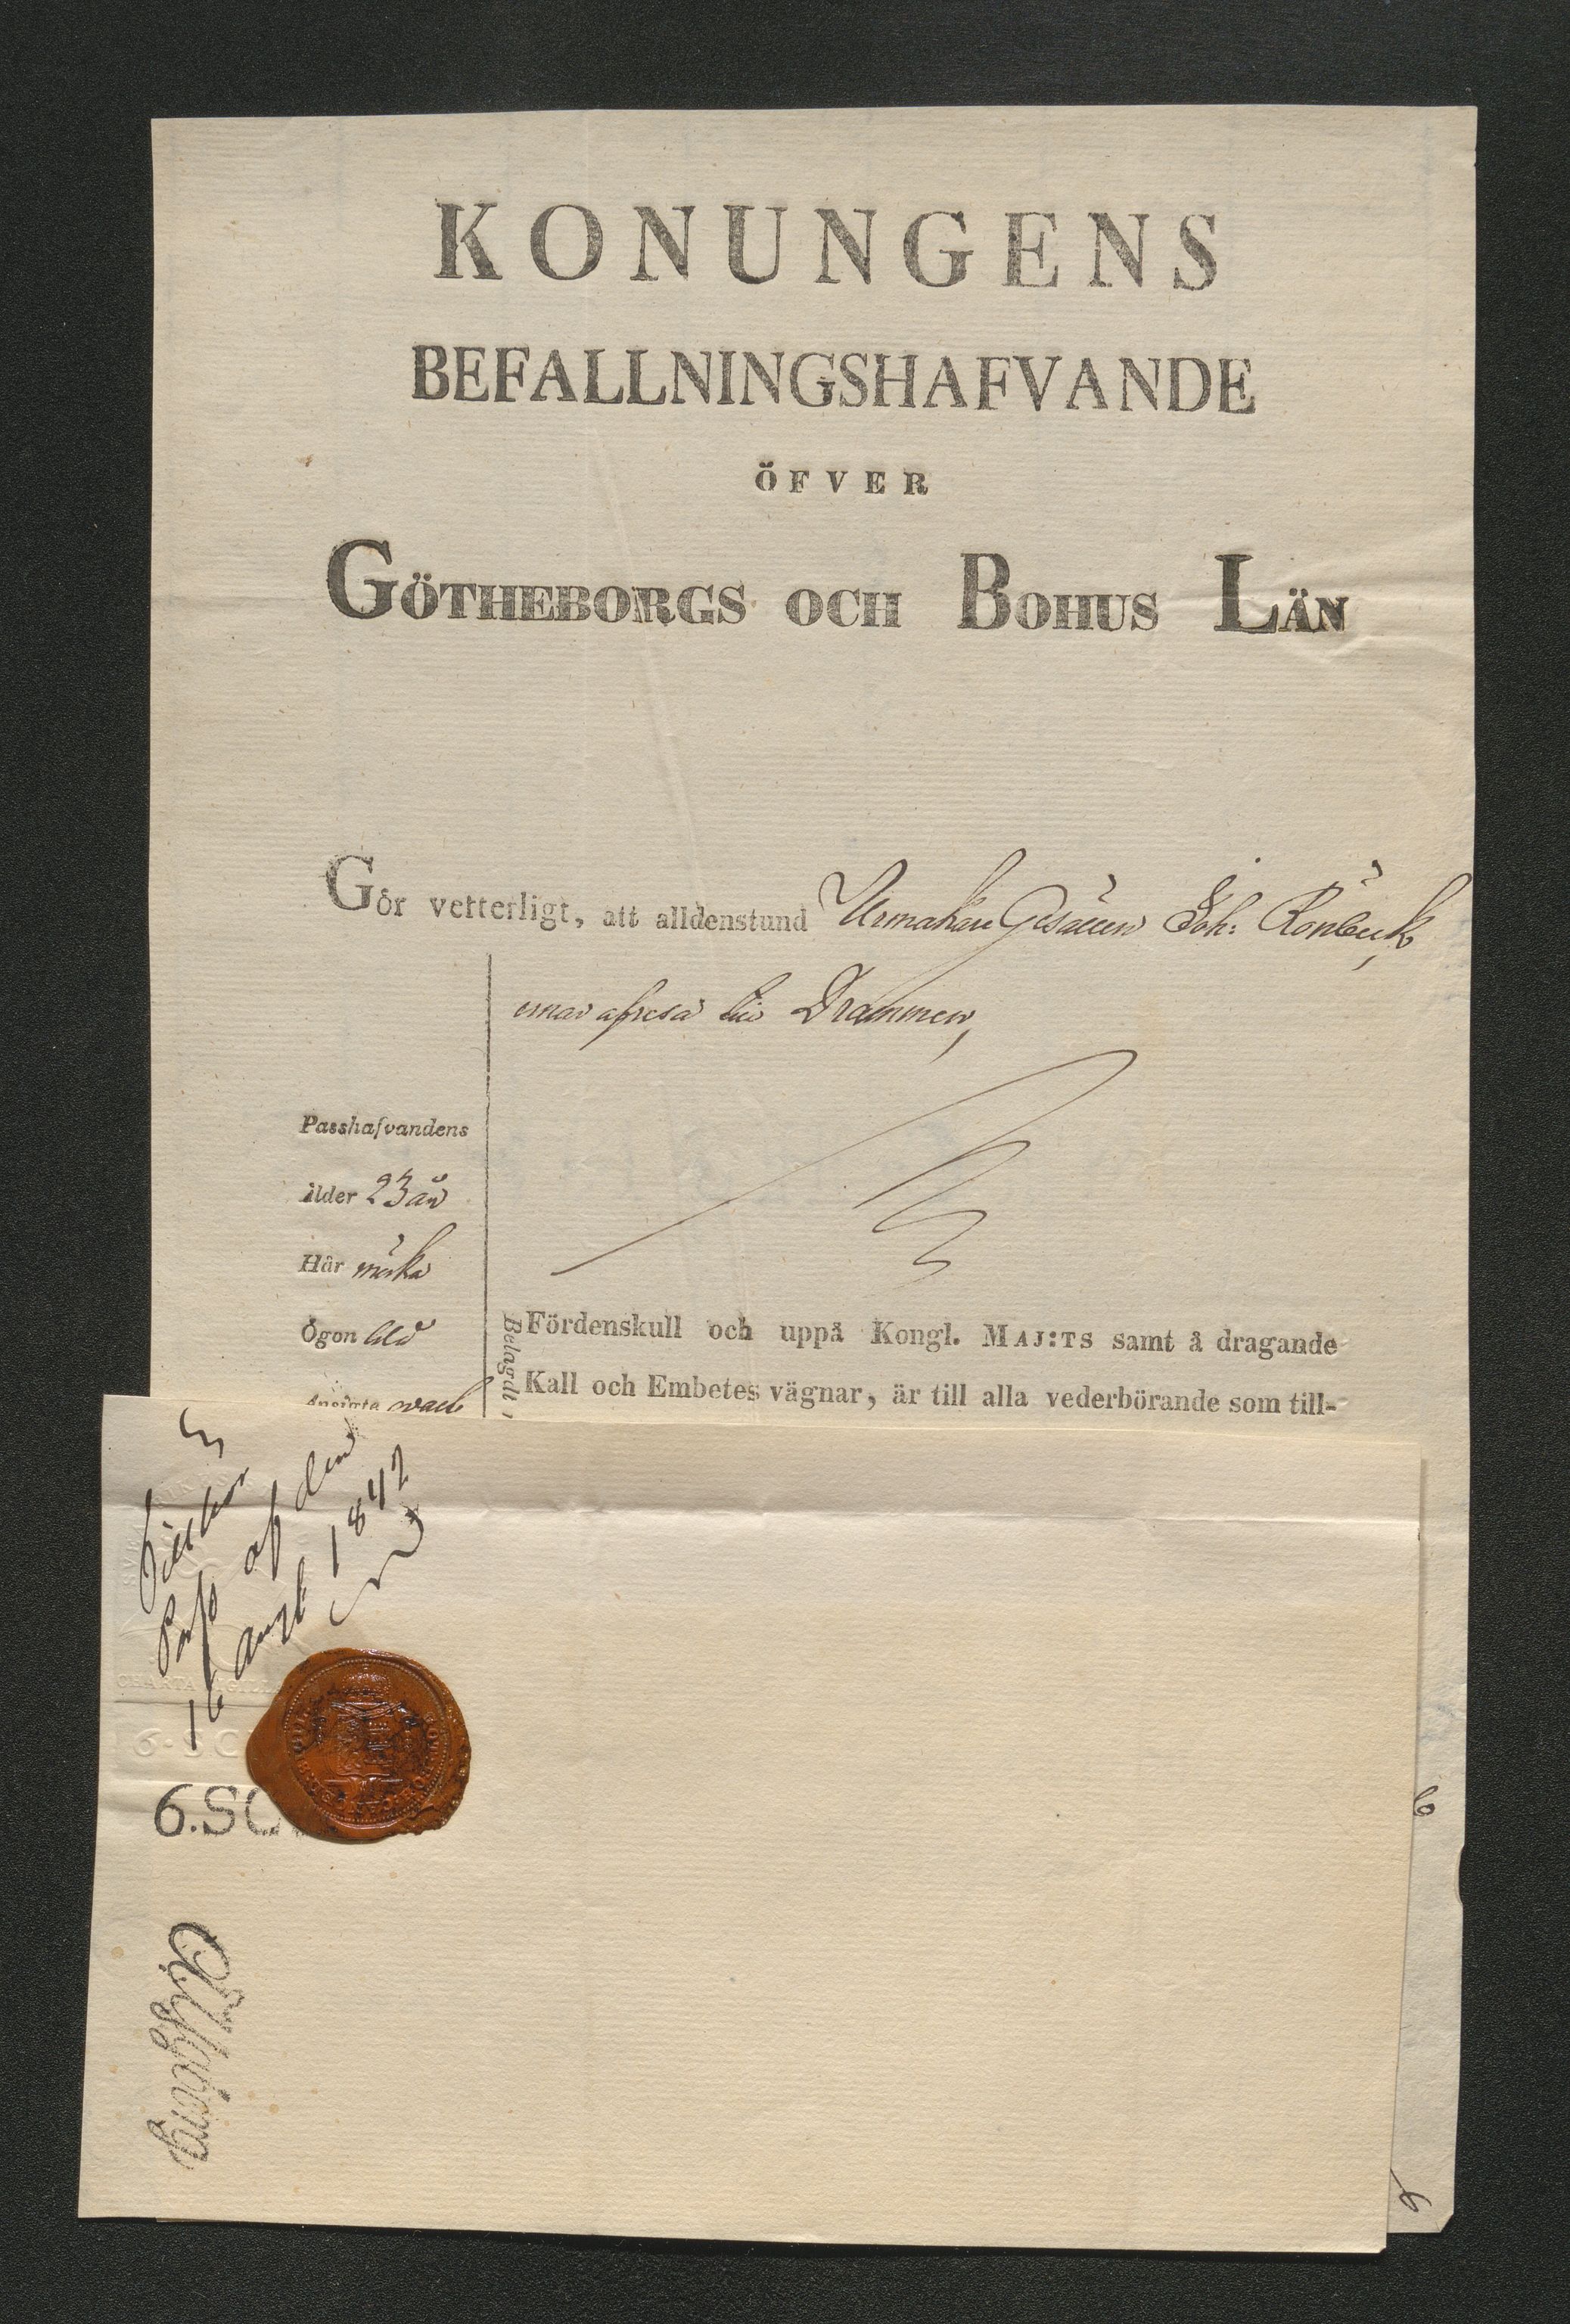 KONUNGENS
BEFALLNINGSHAFVANDE
ÖFVER
GÖTHEBORGS OCH BOHUS LÄN
Gör vetterligt, att alldenstund Urmakare Gesällen Joh: Rönbeck,
ernar afresa till Drammen,
Passhafvandens
ålder 23 år
Hår mörka
Ögon blå
Ansigte
Belagdt,
Fördenskull och uppå Kongl. MAJ:TS samt å dragande
Kall och Embetes vägnar, är till alla vederbörande som till-
Till hör
Pass af den
16 Aug 1842
CHARTA SIGILL
6.SC
6.SC